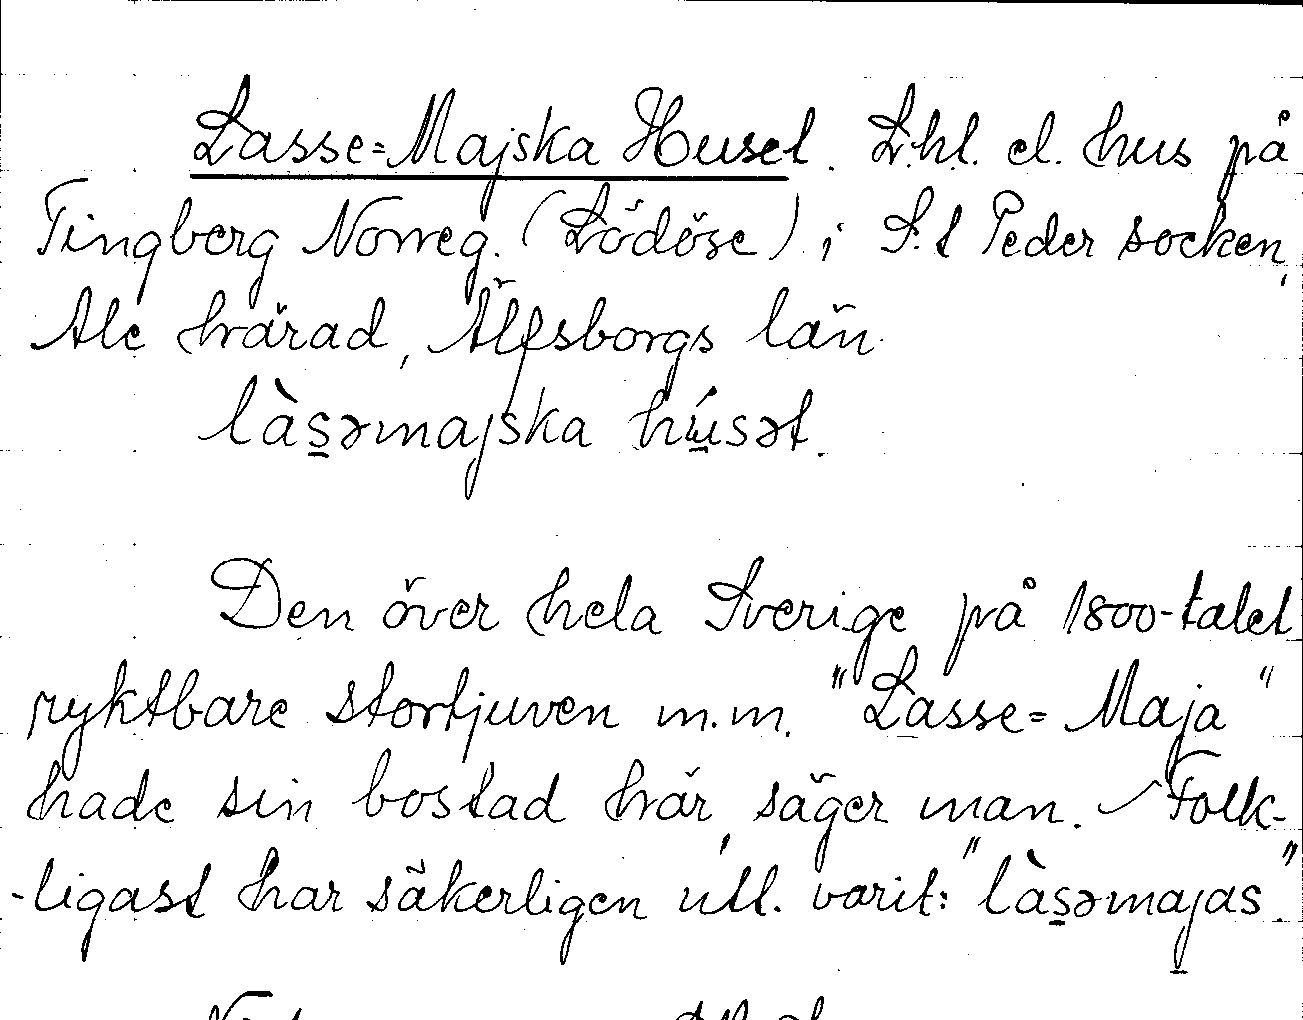 Lasse=Majska Huset. L.hl. el. hus på
Tingberg Norreg. (Lödöse) i S:t Peder socken,
Ale härad, Älfsborgs län.
làs̱əmajska hú̱sət.
Den över hela Sverige på 1800-talet
ryktbare stortjuven m.m. "Lasse=Maja"
hade sin bostad här, säger man. Folk-
-ligast har säkerligen utt. varit: "làs̱əmaj̱as".